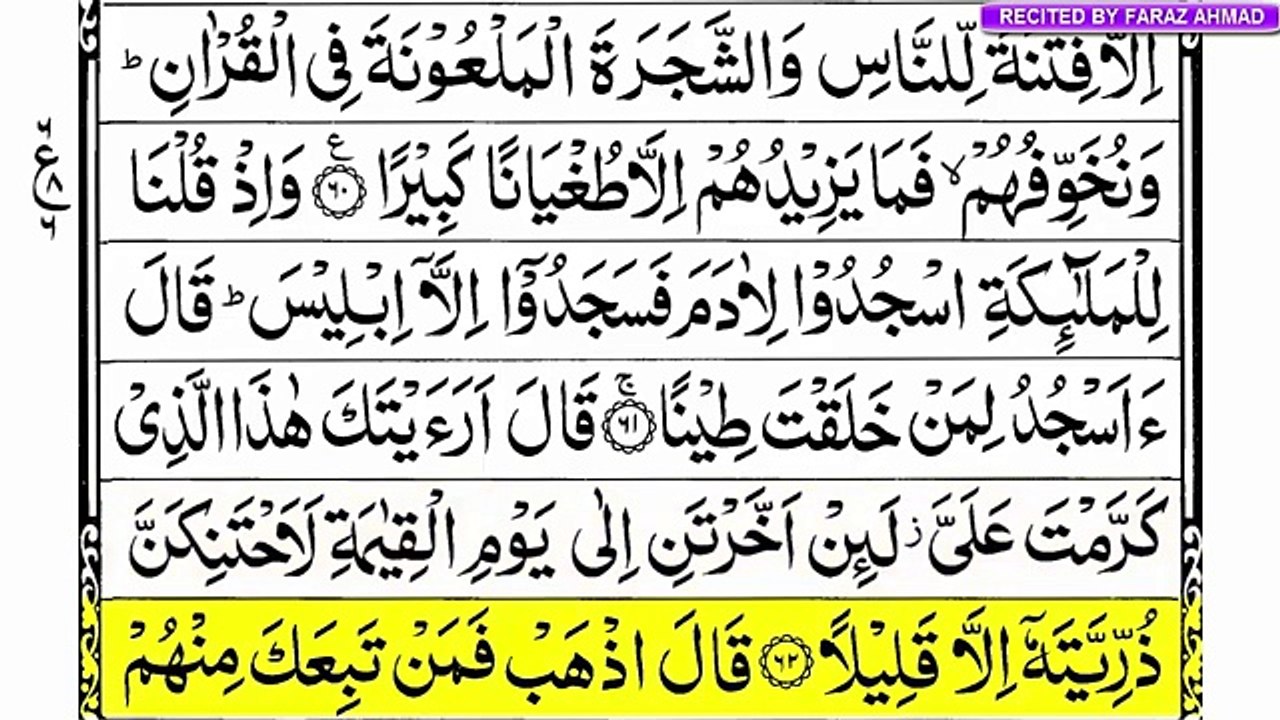 RECITED BY FARAZ AHMAD
اِلَّا فِتْنَةً لِّلنَّاسِ وَالشَّجَرَةَ الْمَلْعُوْنَةَ فِى الْقُرْاٰنِ ؕ
وَنُخَوِّفُهُمْ ۙ فَمَا يَزِيْدُهُمْ اِلَّا طُغْيَانًا كَبِيْرًا ۟ع ۶۰ وَاِذْ قُلْنَا
لِلْمَلٰٓئِكَةِ اسْجُدُوْا لِاٰدَمَ فَسَجَدُوْۤا اِلَّاۤ اِبْلِيْسَ ؕ قَالَ
ءَاَسْجُدُ لِمَنْ خَلَقْتَ طِيْنًا ۚ ۶۱ قَالَ اَرَءَيْتَكَ هٰذَا الَّذِىْ
كَرَّمْتَ عَلَىَّ ز لَئِنْ اَخَّرْتَنِ اِلٰى يَوْمِ الْقِيٰمَةِ لَاَحْتَنِكَنَّ
ذُرِّيَّتَهٗۤ اِلَّا قَلِيْلًا ۶۲ قَالَ اذْهَبْ فَمَنْ تَبِعَكَ مِنْهُمْ